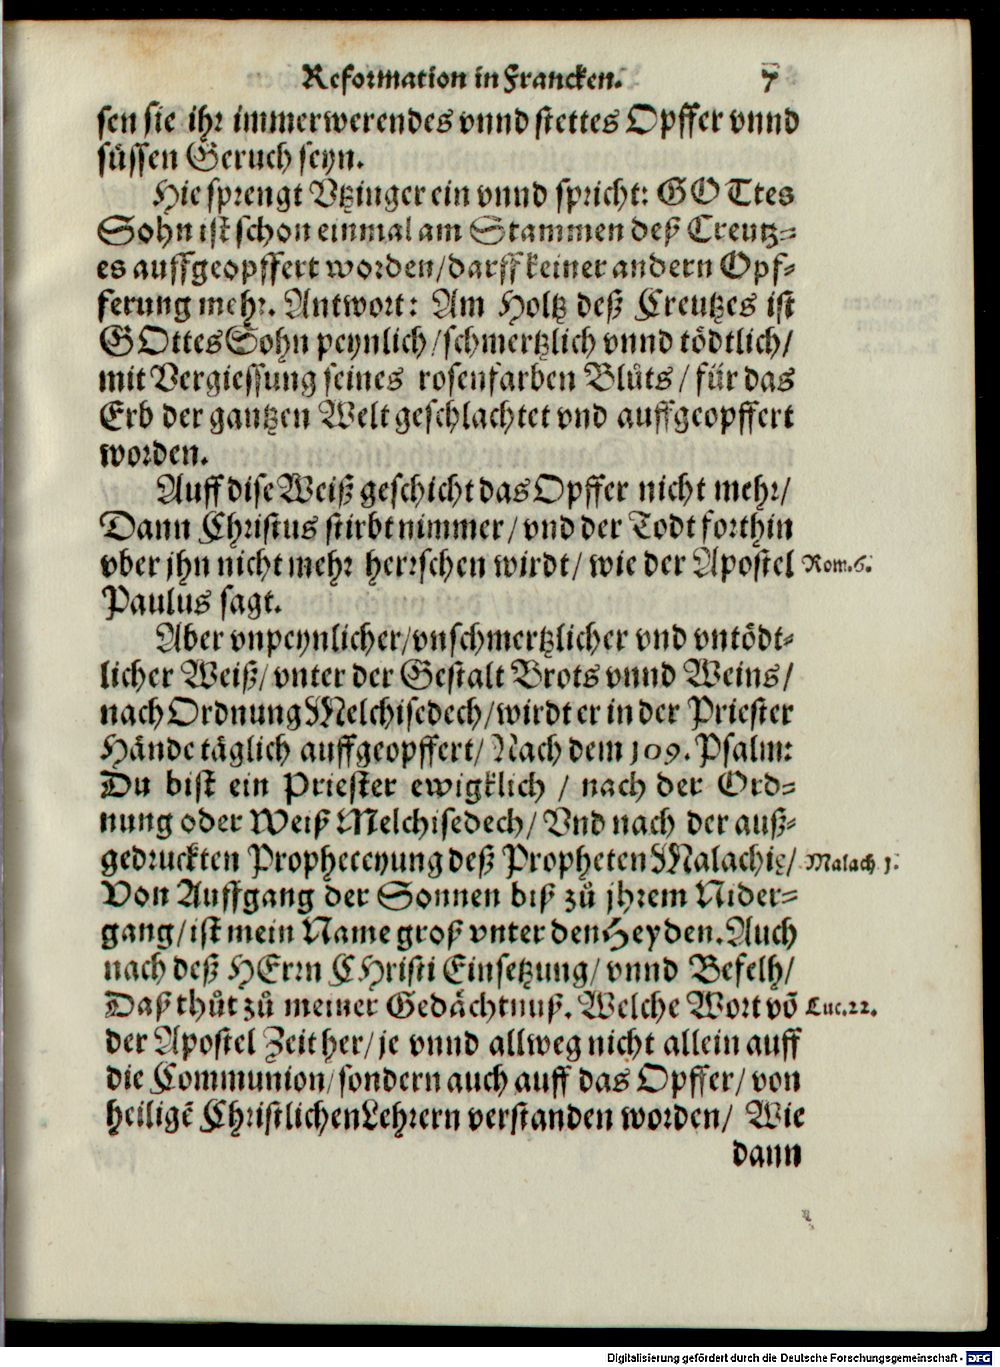 Reformation in Francken. 7
sen sie ihr immerwerendes vnnd stettes Opffer vnnd
süssen Geruch seyn.
Hie sprengt Vtzinger ein vnnd spricht: GOTtes
Sohn ist schon einmal am Stammen deß Creutz=
es auffgeopffert worden/darff keiner andern Opf=
ferung mehr. Antwort: Am Holtz deß Creutzes ist
GOttes Sohn peynlich/schmertzlich vnnd tödtlich/
mit Vergiessung seines rosenfarben Blůts/für das
Erb der gantzen Welt geschlachtet vnd auffgeopffert
worden.
Auff dise Weiß geschicht das Opffer nicht mehr/
Dann Christus stirbt nimmer/vnd der Todt forthin
vber jhn nicht mehr herrschen wirdt/wie der Apostel Rom.6.
Paulus sagt.
Aber vnpeynlicher/vnschmertzlicher vnd vntödt=
licher Weiß/vnter der Gestalt Brots vnnd Weins/
nach Ordnung Melchisedech/wirdt er in der Priester
Hände täglich auffgeopffert/Nach dem 109. Psalm:
Du bist ein Priester ewigklich / nach der Ord=
nung oder Weiß Melchisedech/Vnd nach der auß=
gedruckten Propheceyung deß Propheten Malachię/ Malach 1.
Von Auffgang der Sonnen biß zů jhrem Nider=
gang/ist mein Name groß vnter den Heyden. Auch
nach deß HErrn CHristi Einsetzung/vnnd Befelh/
Daß thůt zů meiner Gedächtnuß. Welche Wort võ Luc.22.
der Apostel Zeit her/je vnnd allweg nicht allein auff
die Communion/sondern auch auff das Opffer/von
heiligẽ Christlichen Lehrern verstanden worden/ Wie
dann
Digitalisierung gefördert durch die Deutsche Forschungsgemeinschaft - DFG